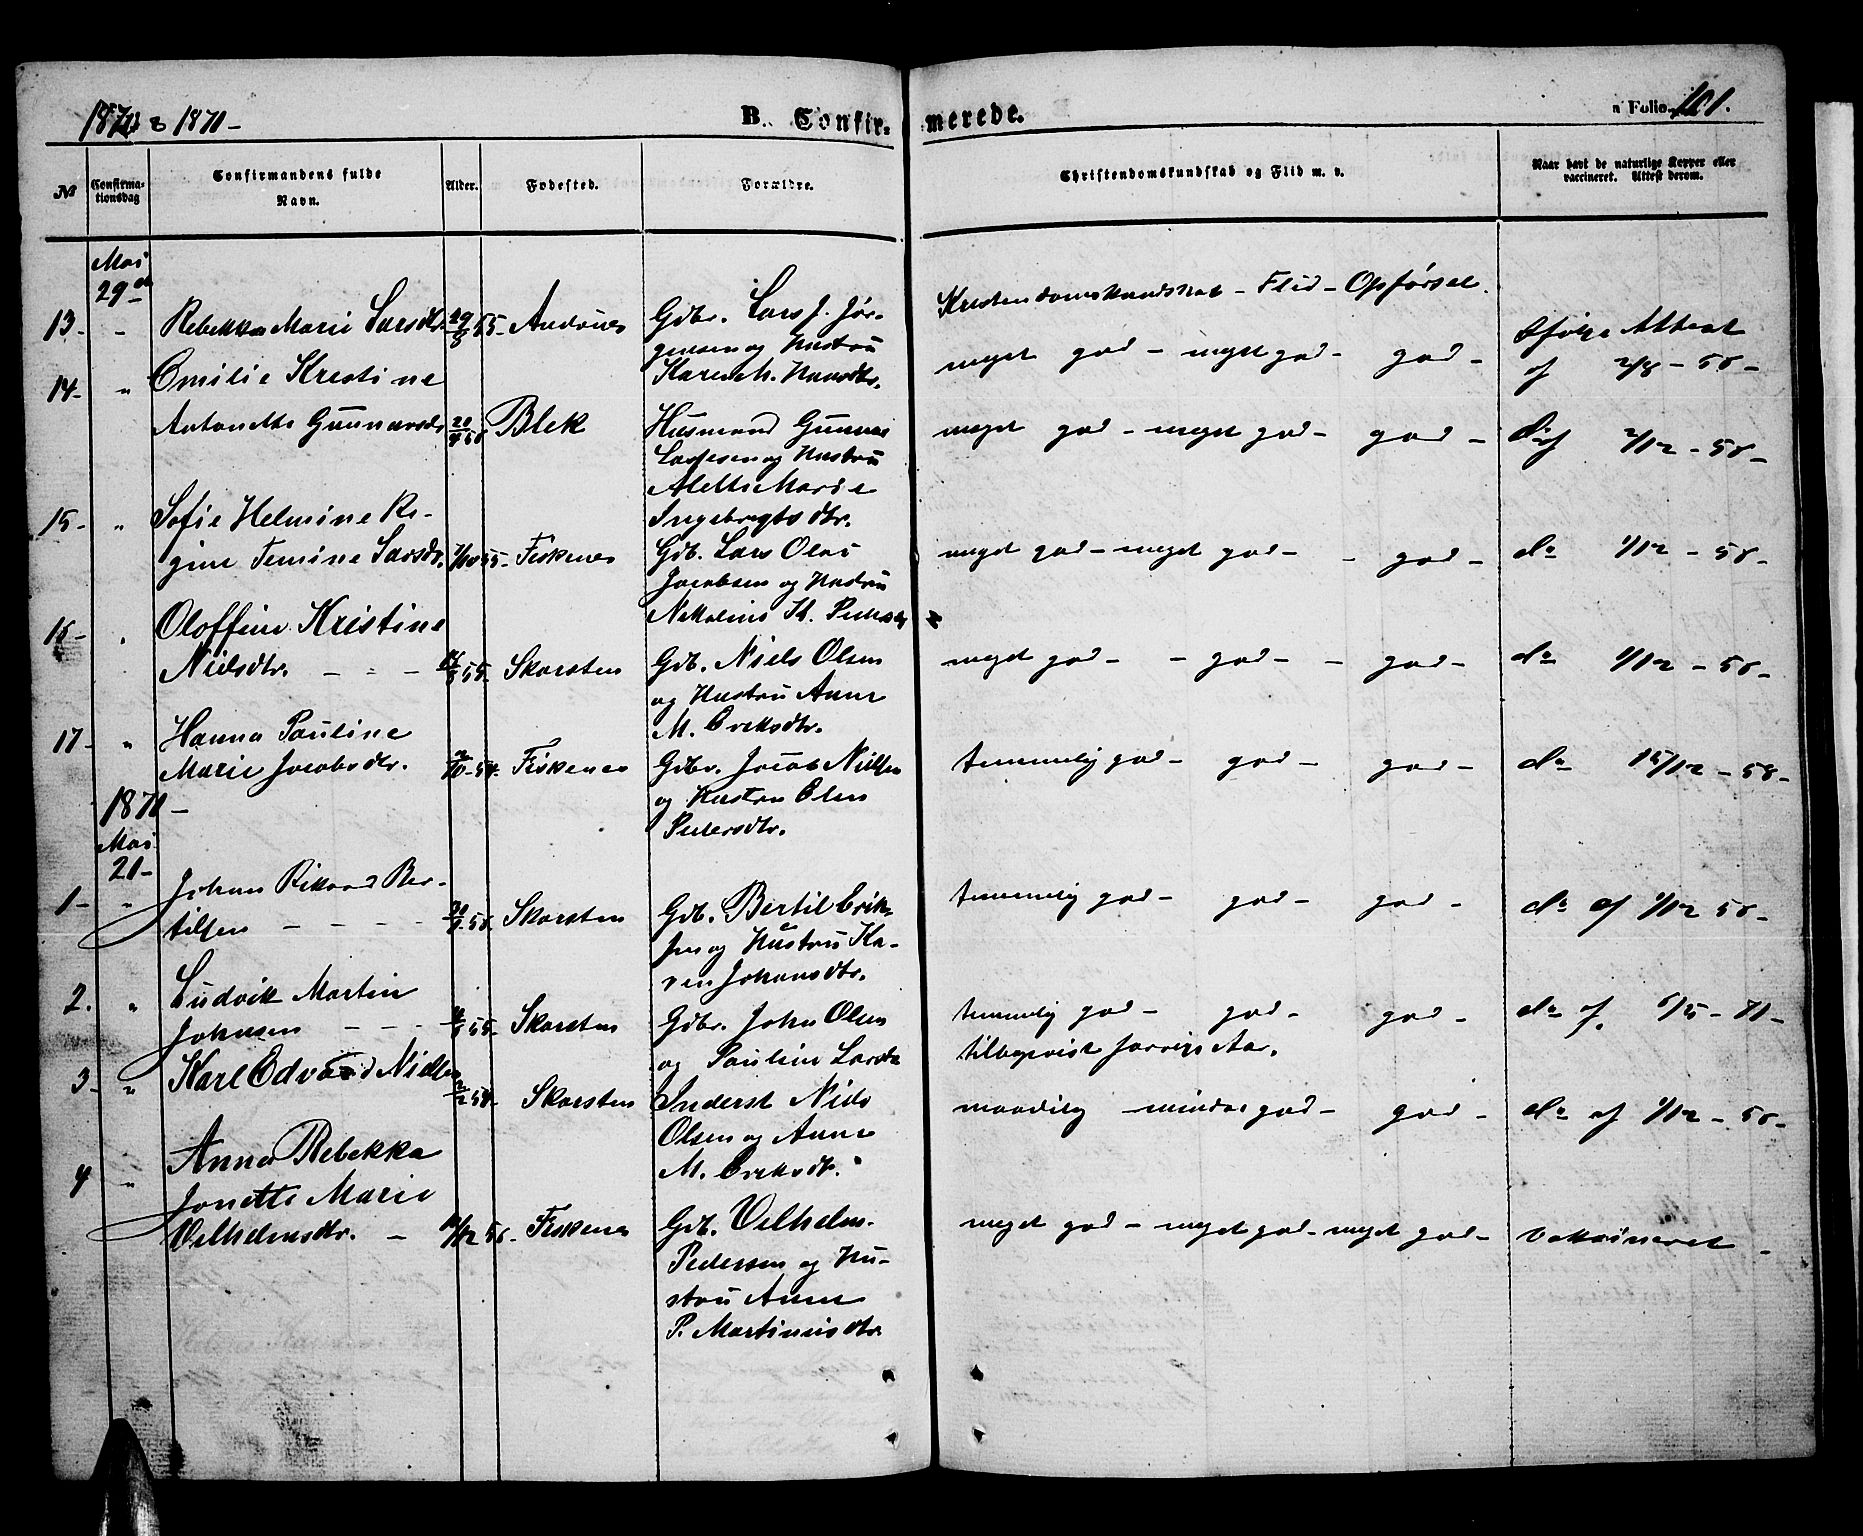 1870 & 1871-
B. Confir-
merede.
Folio 101.
No
Confirma-
tionsdag
Confirmandens fulde
Navn.
Alder.
Fødested.
Forældre.
Christendomskundskab og Flid m. v.
Naar havt de naturlige Kopper eller
vaccineret. Attest derom.
Mai
29
Kristendomskundskab - Flid - Opførsel.
13- " Rebekka Marie Larsdtr. 55- Andønes Gdbr. Lars J. Jør-
gensen og Hustru
Karen M. Hansdtr.
meget god - meget god - god - Attest
af 2/8 - 56 -
14- " Emilie Kristine
Antonette Gunnarsdtr Blek Husmand Gunnar
Larssen og Hustru
Alette Marie
Ingebregts dtr.
meget god - meget god - god - 2/12 - 58 -
15- " Sofie Helmine Re-
gine Femine Larsdtr. 7/10 55- Fiskenes Gdb. Lars Olai
Jacobsen og Hustru
Nekoline
meget god - meget god - - god - do 1/12 - 58 -
16- " Oloffine Kristine
Nielsdtr. - - - 55- Skarsten Gdb. Niels Olsen
og Hustru Anne
M. Eriksdtr.
meget god - - god - - god - do 1/12 - 58 -
17- " Hanna Pauline
Marie Jacobsdtr. 54- Fiskenes Gdbr. Jacob Nielsen
og Hustru Elen
Pedersdtr.
temmelig god - god - god - do 15/12 - 58 -
1871 -
Mai
21-
1- " Johan Rikard Ber-
tilsen - - - - Skarsten Gdb. Bertil Erik-
sen og Hustru Ka-
ren Johansdtr.
temmelig god - god - god - do af 1/12 58 -
2. " Ludvik Martin
Johnsen - - - 55- Skarsten Gdbr. John Olsen
og Pauline Larsdtr
temmelig god - god - god - do af
tilbagevist forrige Aar.
3- " Karl Edvard Nielsen Skarsten Inderst Niels
Olsen og Anne
M. Eriksdtr.
maadelig mindre god - god - do af 1/12 - 58 -
4 " Anna Rebekka
Jonette Marie
Vilhelmsdtr. - 56- Fiskenes Gdb. Vilhelm
Pedersen og Hu-
stru Anne
P. Martinusdtr.
meget god - meget god - meget god - Vaksineret -